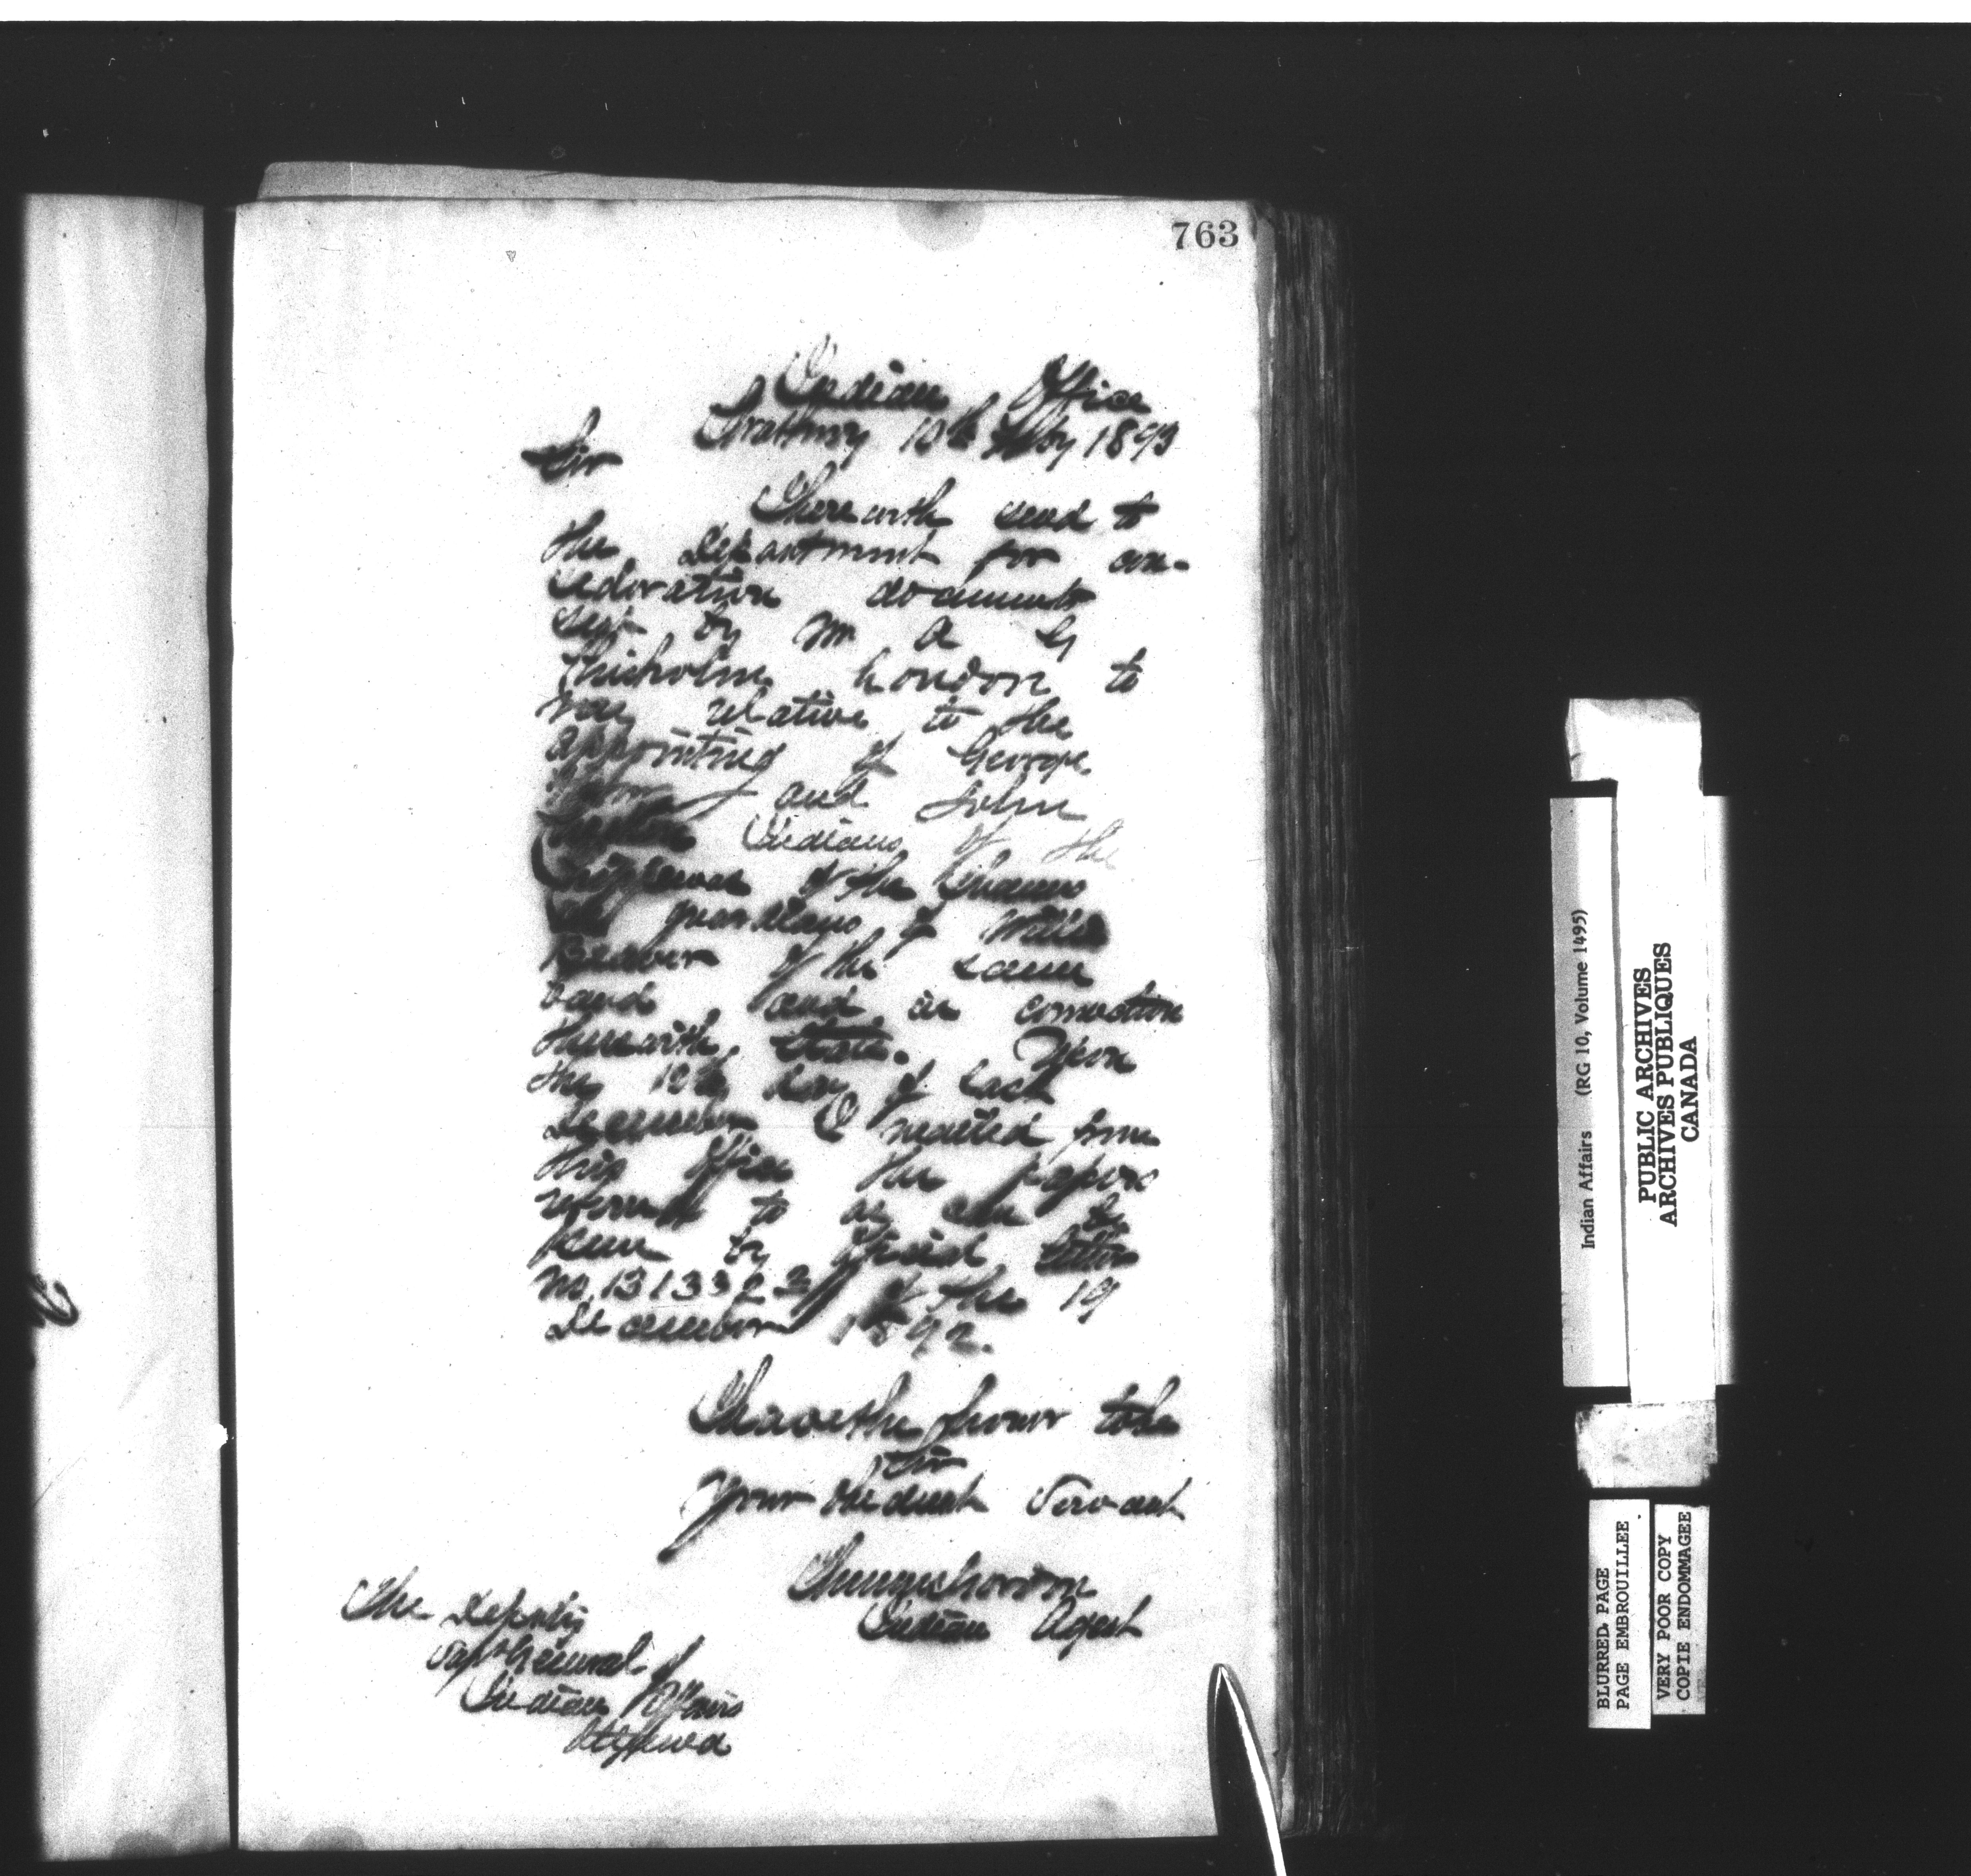 763
Indian Office
Strathroy 10th Feby 1893
Sir
I herewith send to
the Department for con-
sideration documents
sent by Mr A G
Chisholm London to
me relative to the
appointing of George
and John
Indians of the
Chippewas of the Thames
as guardians of
Beaver of the same
band and in connection
therewith state. Upon
the 10th day of last
December I mailed from
this Office the papers
referred to as can be
seen by Official letter
No. 131332 of the 19
December 1892.
I have the honor to be
Sir
Your obedient Servant
Thomas Gordon
Indian Agent
The Deputy
Supt General of
Indian Affairs
Ottawa
Indian Affairs (RG 10, Volume 1495)
PUBLIC ARCHIVES
ARCHIVES PUBLIQUES
CANADA
BLURRED PAGE
PAGE EMBROUILLEE
VERY POOR COPY
COPIE ENDOMMAGEE